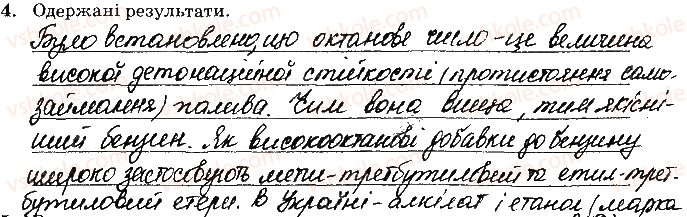 4. Одержані результати.
Було встановлено, що октанове число - це величина
високої детонаційної стійкості (протистояння само-
займаленя) палива. Чим вона вища, тим якісні-
ший бензин. Як високооктанові добавки до бензину
широко застосовують метил-третбутиловий та етил-трет-
бутиловий етери. В Україні - алкілат і етанол (марка